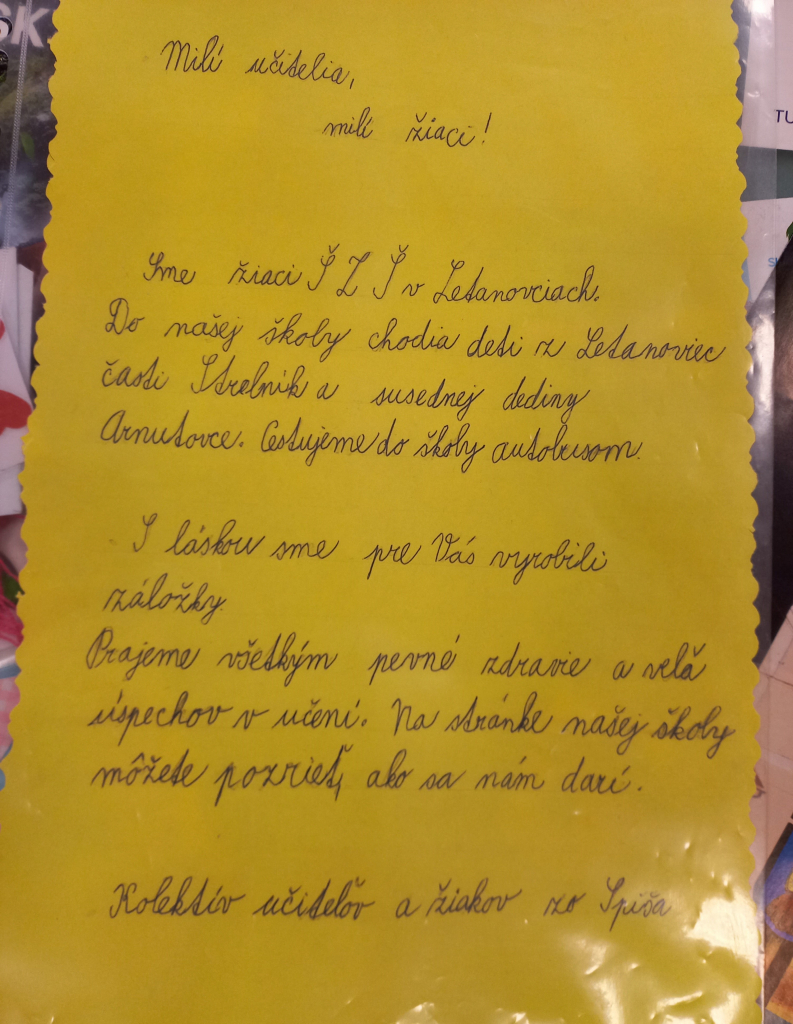 SK
Milí učitelia,
milí žiaci!
TU
Sme žiaci Š Z Š v Letanovciach.
Do našej školy chodia deti z Letanoviec
časti Strelník a susednej dediny
Arnutovce. Cestujeme do školy autobusom.
S láskou sme pre Vás vyrobili
záložky.
Prajeme všetkým pevné zdravie a veľa
úspechov v učení. Na stránke našej školy
môžete pozrieť, ako sa nám darí.
Kolektív učiteľov a žiakov zo Spiša